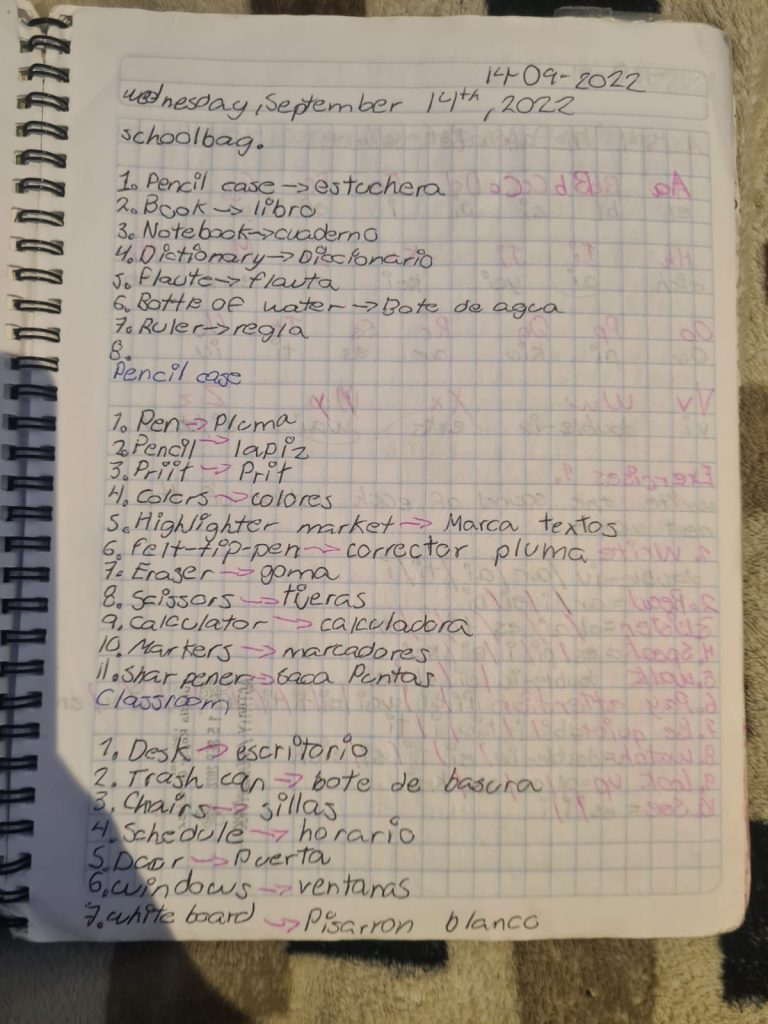 14-09-2022
Wednesday, September 14th, 2022
schoolbag.
1. Pencil case → estuchera
2. Book → libro
3. Notebook → cuaderno
4. Dictionary → Diccionario
5. Flaute → flauta
6. Bottle of water → Bote de agua
7. Ruler → regla
8.
Pencil case
1. Pen → Pluma
2. Pencil → lapiz
3. Priit → Prit
4. Colors → colores
5. Highlighter market → Marca textos
6. Felt-tip-pen → corrector pluma
7. Eraser → goma
8. Scissors → tijeras
9. Calculator → calculadora
10. Markers → marcadores
11. Sharpener → saca Puntas
Classroom
1. Desk → escritorio
2. Trash can → bote de basura
3. Chairs → sillas
4. Schedule → horario
5. Door → Puerta
6. windows → ventanas
7. white board → Pisarron blanco